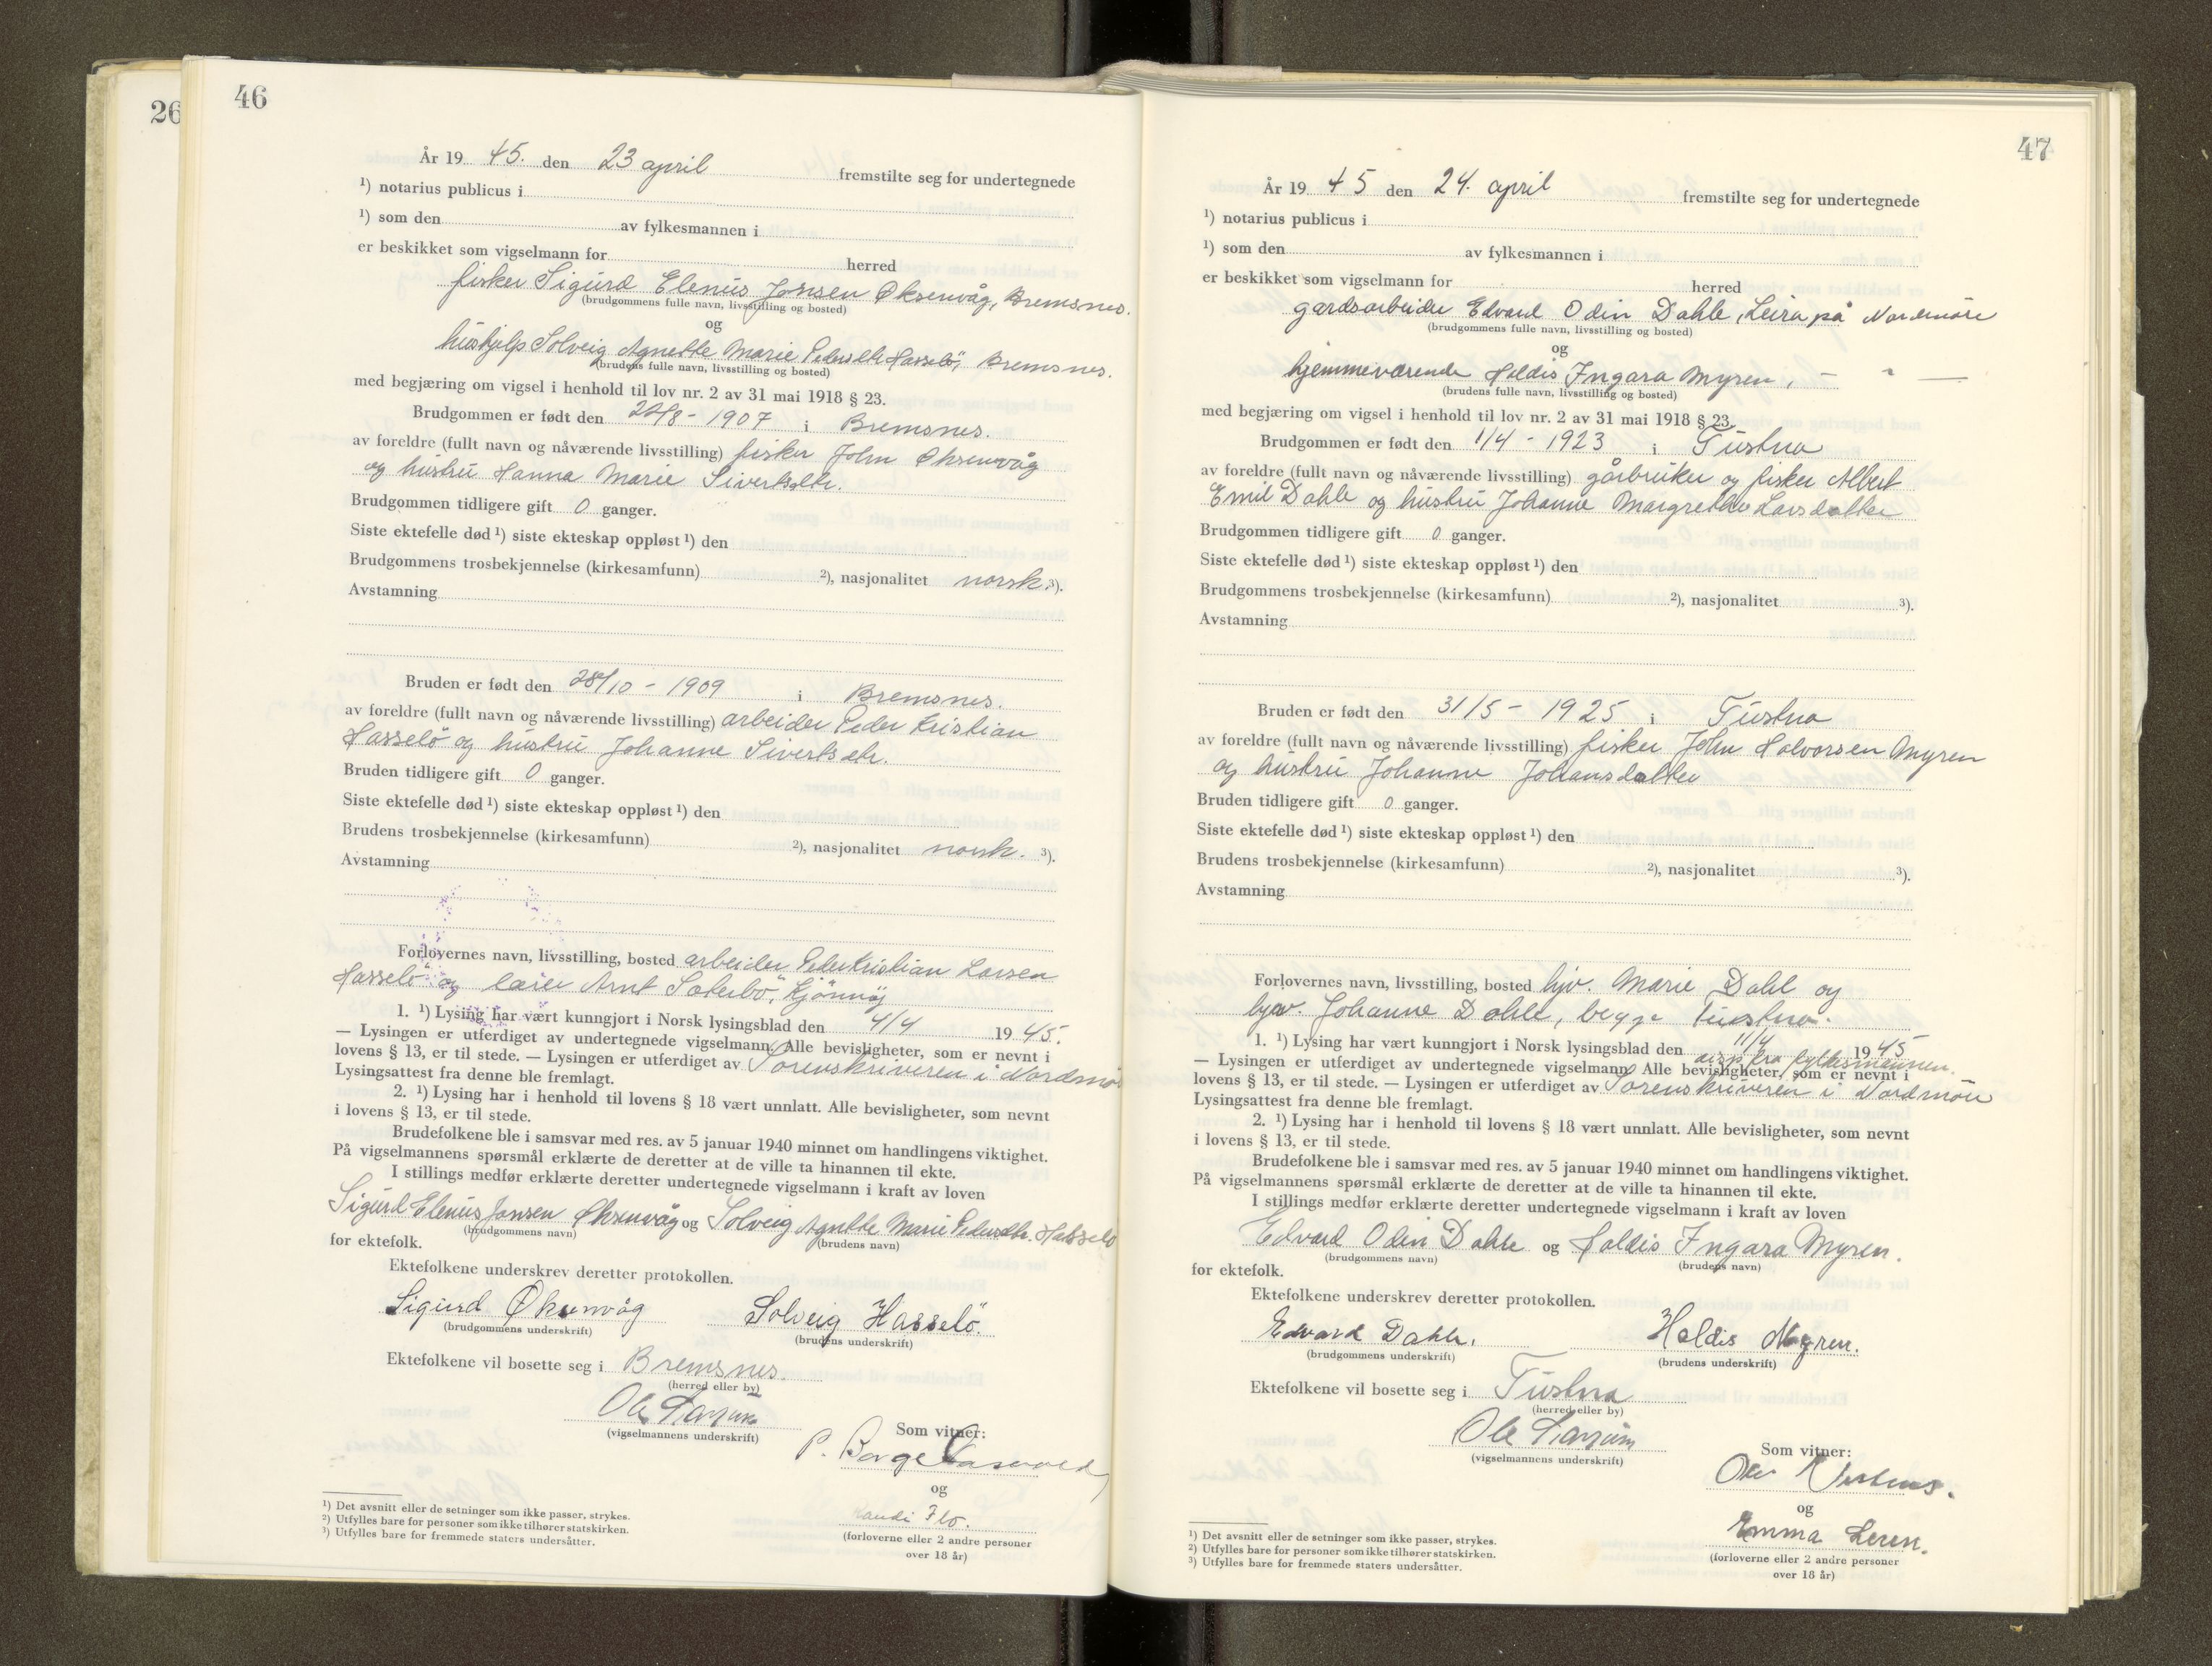 26
46
År 19 45. den 23 april fremstilte seg for undertegnede
¹) notarius publicus i
¹) som den av fylkesmannen i
er beskikket som vigselmann for herred
fisker Sigurd Elenus Jonsen Øksenvåg, Bremsnes.
(brudgommens fulle navn, livsstilling og bosted)
og
hushjelp Solveig Agnette Marie Pedersdtr. Hasselö, Bremsnes.
(brudens fulle navn, livsstilling og bosted)
med begjæring om vigsel i henhold til lov nr. 2 av 31 mai 1918 § 23.
Brudgommen er født den 22/8 - 1907 i Bremsnes.
av foreldre (fullt navn og nåværende livsstilling) fisker John Øksenvåg
og hustru Hanna Marie Sivertsdtr.
Brudgommen tidligere gift 0 ganger.
Siste ektefelle død ¹) siste ekteskap oppløst ¹) den
Brudgommens trosbekjennelse (kirkesamfunn) ²), nasjonalitet norsk ³).
Avstamning
Bruden er født den 28/10 - 1909 i Bremsnes.
av foreldre (fullt navn og nåværende livsstilling) arbeider Peder Kristian
Hasselö og hustru Johanne Sivertsdtr.
Bruden tidligere gift 0 ganger.
Siste ektefelle død ¹) siste ekteskap oppløst ¹) den
Brudens trosbekjennelse (kirkesamfunn) ²), nasjonalitet norsk. ³).
Avstamning
Forlovernes navn, livsstilling, bosted arbeider Peder Kristian Larsen
Hasselö og lærer Arnt Sæterbö,
1. ¹) Lysing har vært kunngjort i Norsk lysingsblad den 4/4 19 45.
— Lysingen er utferdiget av undertegnede vigselmann. Alle bevisligheter, som er nevnt i
lovens § 13, er til stede. — Lysingen er utferdiget av Sorenskriveren i Nordmøre
Lysingsattest fra denne ble fremlagt.
2. ¹) Lysing har i henhold til lovens § 18 vært unnlatt. Alle bevisligheter, som nevnt
i lovens § 13, er til stede.
Brudefolkene ble i samsvar med res. av 5 januar 1940 minnet om handlingens viktighet.
På vigselmannens spørsmål erklærte de deretter at de ville ta hinannen til ekte.
I stillings medfør erklærte deretter undertegnede vigselmann i kraft av loven
Sigurd Elenus Jonsen Øksenvåg og Solveig Agnette Marie Pedersdtr. Hasselö
(brudgommens navn) (brudens navn)
for ektefolk.
Ektefolkene underskrev deretter protokollen.
Sigurd Øksenvåg Solveig Hasselö.
(brudgommens underskrift) (brudens underskrift)
Ektefolkene vil bosette seg i Bremsnes.
(herred eller by)
Ole
(vigselmannens underskrift)
Som vitner:
P. Borge
og
Flo.
(forloverne eller 2 andre personer
over 18 år)
¹) Det avsnitt eller de setninger som ikke passer, strykes.
²) Utfylles bare for personer som ikke tilhører statskirken.
³) Utfylles bare for fremmede staters undersåtter.
47
År 19 45 den 24. april fremstilte seg for undertegnede
¹) notarius publicus i
¹) som den av fylkesmannen i
er beskikket som vigselmann for herred
gardsarbeider Edvard Odin Dahle, Leira på Nordmøre
(brudgommens fulle navn, livsstilling og bosted)
og
hjemmeværende Holdis Ingara Myren, — " —
(brudens fulle navn, livsstilling og bosted)
med begjæring om vigsel i henhold til lov nr. 2 av 31 mai 1918 § 23.
Brudgommen er født den 1/4 - 1923 i Tustna
av foreldre (fullt navn og nåværende livsstilling) gårbruker og fisker Albert
Emil Dahle og hustru Johanne Margrethe Larsdatter
Brudgommen tidligere gift 0 ganger.
Siste ektefelle død ¹) siste ekteskap oppløst ¹) den
Brudgommens trosbekjennelse (kirkesamfunn) ²), nasjonalitet ³).
Avstamning
Bruden er født den 31/5 - 1925 i Tustna
av foreldre (fullt navn og nåværende livsstilling) fisker John Halvorsen Myren
og hustru Johanne Johansdatter
Bruden tidligere gift 0 ganger.
Siste ektefelle død ¹) siste ekteskap oppløst ¹) den
Brudens trosbekjennelse (kirkesamfunn) ²), nasjonalitet ³).
Avstamning
Forlovernes navn, livsstilling, bosted hjv. Marie Dahl og
hjv. Johanne Dahle, begge Tustna.
1. ¹) Lysing har vært kunngjort i Norsk lysingsblad den 11/4 19 45
disp. fra fylkesmannen.
— Lysingen er utferdiget av undertegnede vigselmann. Alle bevisligheter, som er nevnt i
lovens § 13, er til stede. — Lysingen er utferdiget av Sorenskriveren i Nordmøre
Lysingsattest fra denne ble fremlagt.
2. ¹) Lysing har i henhold til lovens § 18 vært unnlatt. Alle bevisligheter, som nevnt
i lovens § 13, er til stede.
Brudefolkene ble i samsvar med res. av 5 januar 1940 minnet om handlingens viktighet.
På vigselmannens spørsmål erklærte de deretter at de ville ta hinannen til ekte.
I stillings medfør erklærte deretter undertegnede vigselmann i kraft av loven
Edvard Odin Dahle og Holdis Ingara Myren.
(brudgommens navn) (brudens navn)
for ektefolk.
Ektefolkene underskrev deretter protokollen.
Edvard Dahle. Holdis Myren.
(brudgommens underskrift) (brudens underskrift)
Ektefolkene vil bosette seg i Tustna
(herred eller by)
Ole
(vigselmannens underskrift)
Som vitner:
og
Emma Leren.
(forloverne eller 2 andre personer
over 18 år)
¹) Det avsnitt eller de setninger som ikke passer, strykes.
²) Utfylles bare for personer som ikke tilhører statskirken.
³) Utfylles bare for fremmede staters undersåtter.